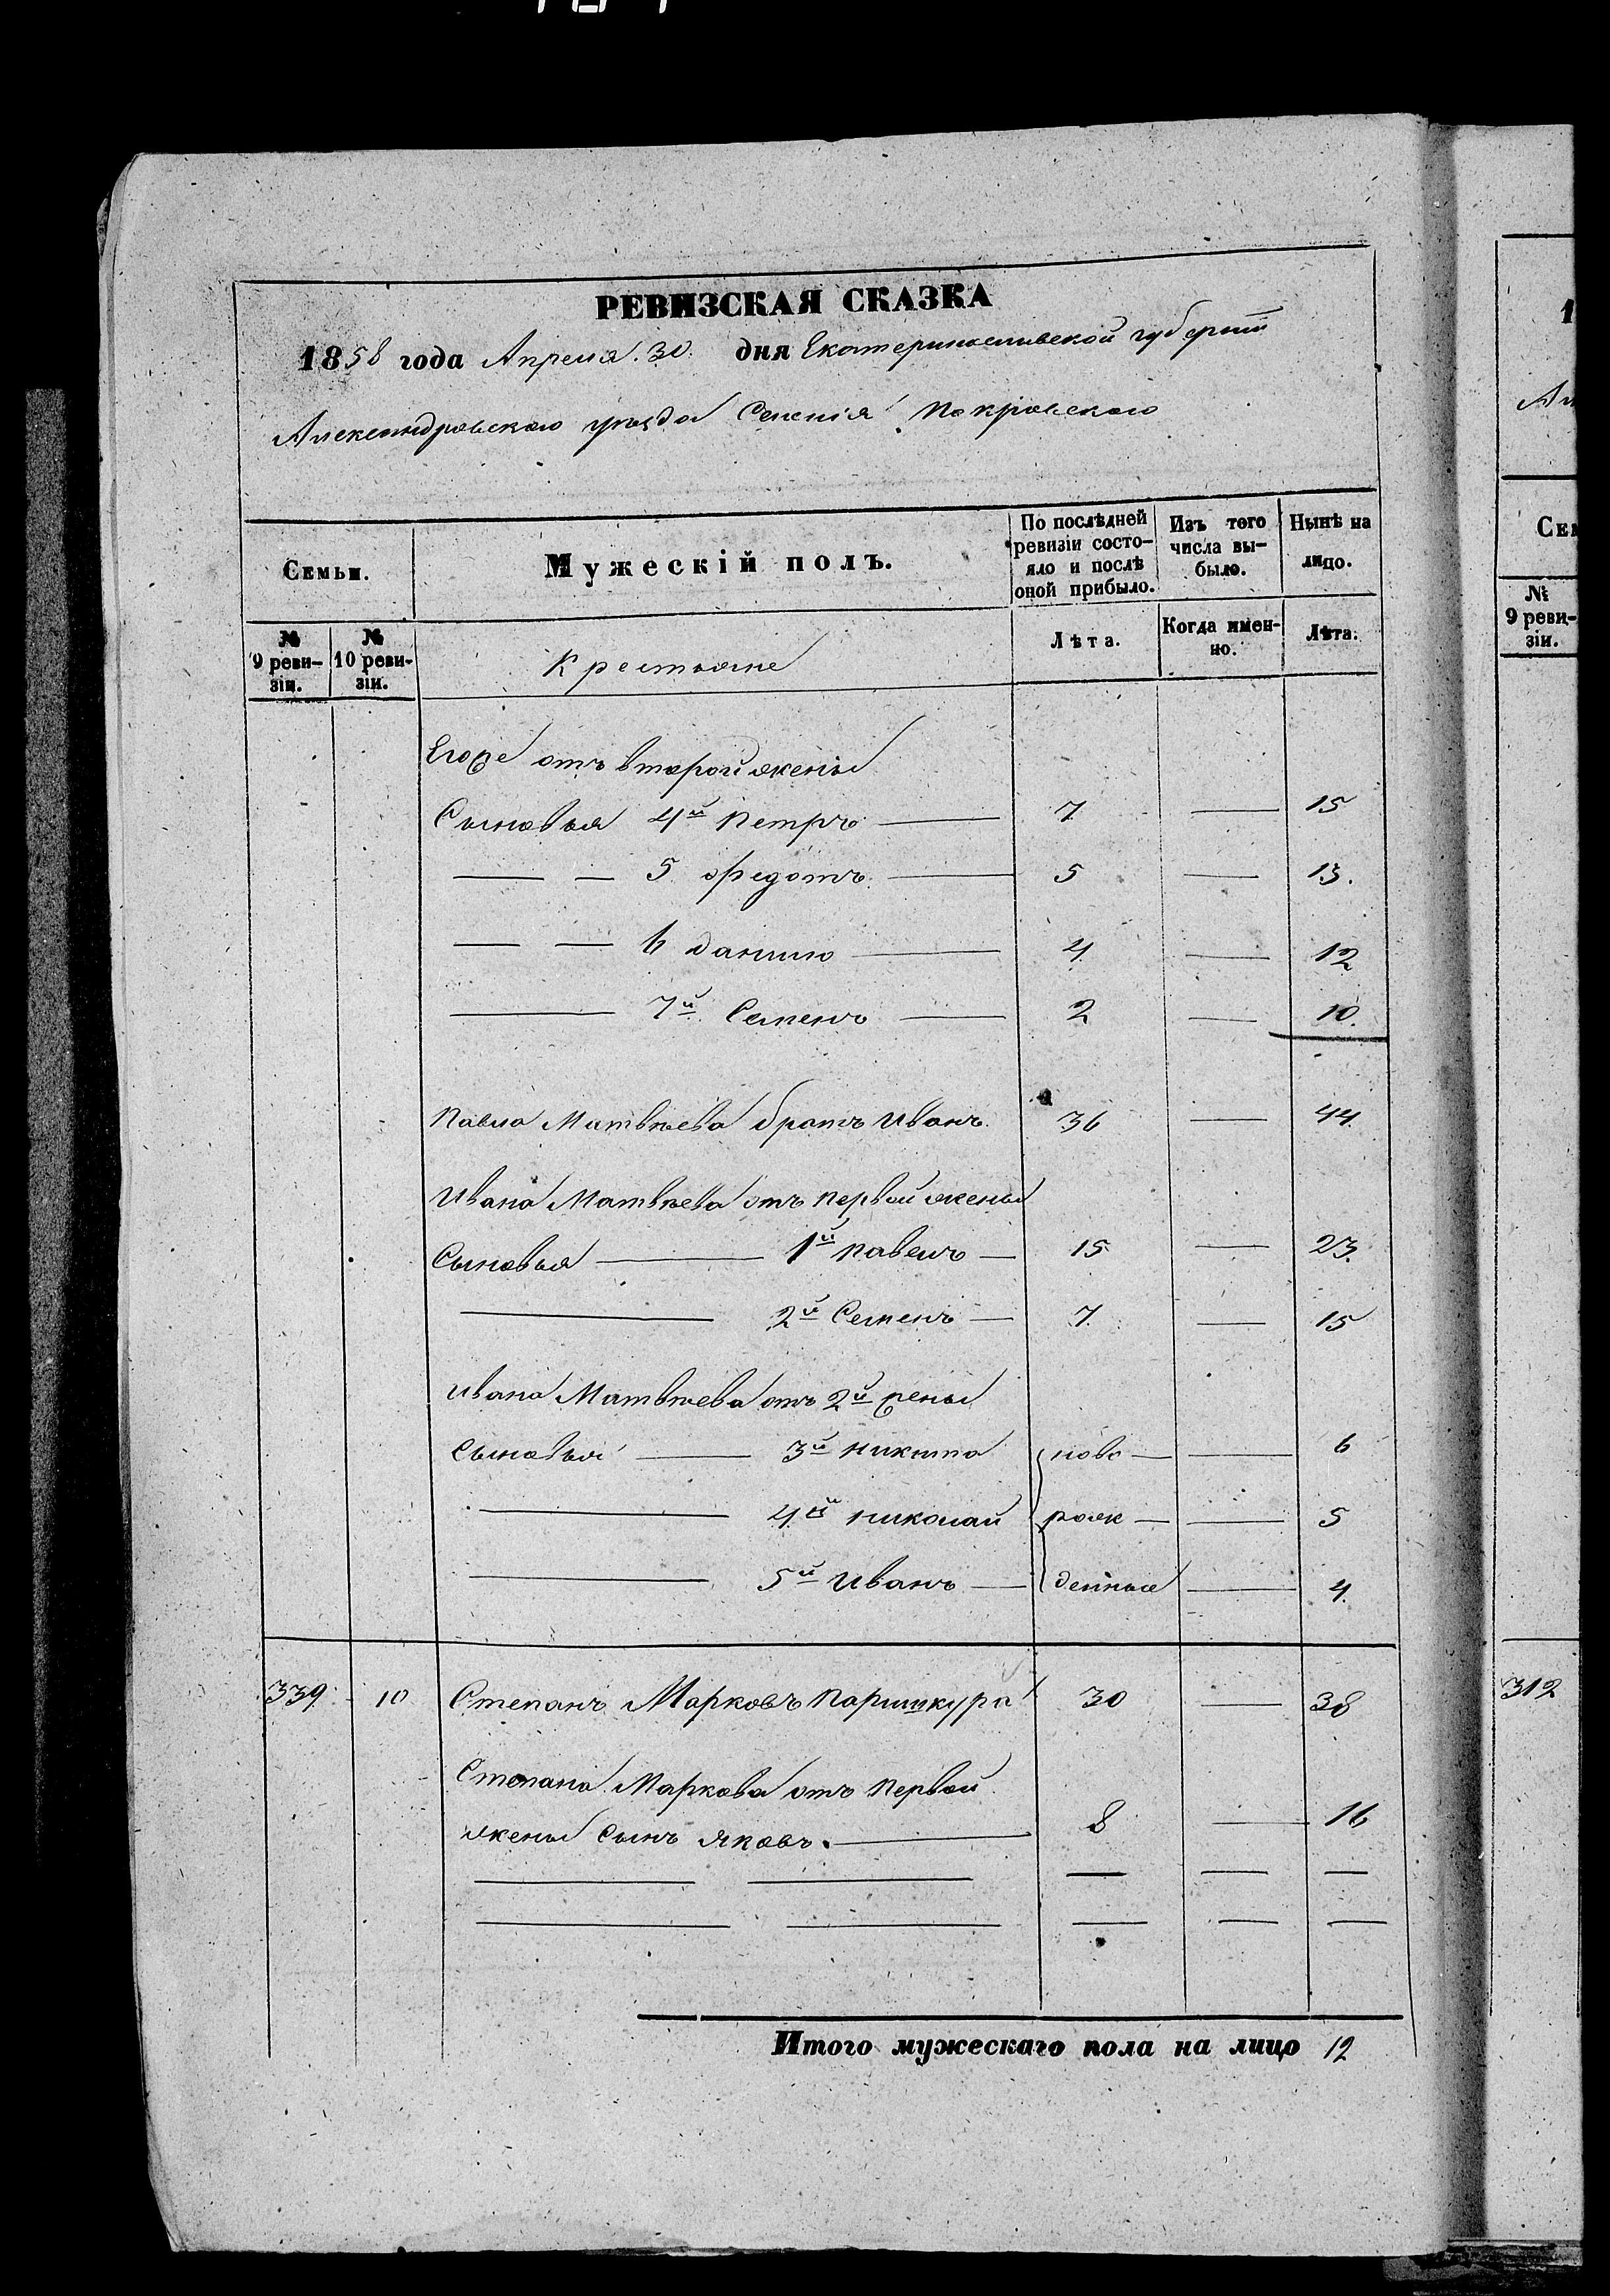 РЕВИЗСКАЯ СКАЗКА
1858 года Апреля 30 дня Екатеринославской губерніи
Александровскаго уѣзда Селенія Покровскаго
Семьи.
Мужескій полъ.
По послѣдней ревизіи состо-яло и послѣ оной прибыло.
Изъ того числа вы-было.
Нынѣ на лицо.
№ 9 реви-зіи.
№ 10 реви-зіи.
Крестьяне
Лѣта.
Когда имен-но.
Лѣта.
отъ второй жены
Сыновья 4й Петръ — 7 — 15
— — 5 Федотъ — 5 — 13.
— — 6 Данило — 4 — 12
— 7й Семенъ — 2 — 10.
Павла Матвѣева братъ Иванъ. 36 — 44
Ивана Матвѣева отъ первой жены
Сыновья — 1й Павелъ — 15 — 23.
— 2й Семенъ — 7 — 15
Ивана Матвѣева отъ 2й жены
Сыновья — 3й Никита ново — — 6
— 4й Николай рож — — 5
— 5й Иванъ — денные — 4
339 10 Степанъ Марковъ Паришкура 30 — 38
Степана Маркова отъ первой
жены сынъ Яковъ. — 8 — 16
— — — — —
— — — — —
Итого мужескаго пола на лицо 12
1
Ал
Сем
№ 9 реви-зіи.
312